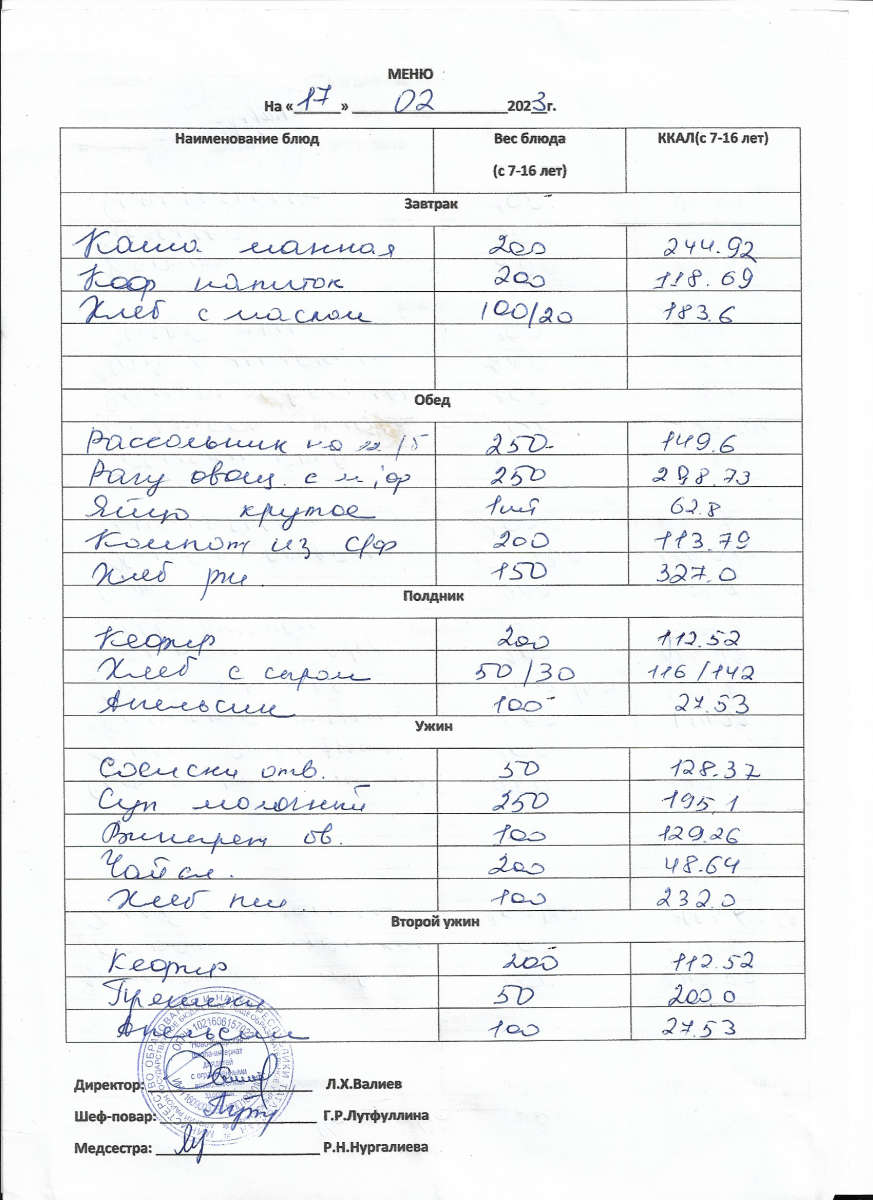 МЕНЮ
На «17» 02 2023г.
Наименование блюд Вес блюда (с 7-16 лет) ККАЛ(с 7-16 лет)
Завтрак
Каша манная 200 244.92
Коф напиток 200 118.69
Хлеб с маслом 100/20 183.6
Обед
Рассольник на м/б 250 149.6
Рагу овощ. с м/ф 250 298.73
Яйцо крутое 1шт 62.8
Компот из с/ф 200 113.79
Хлеб рж 150 327.0
Полдник
Кефир 200 112.52
Хлеб с сыром 50/30 116/142
Апельсин 100 27.53
Ужин
Сосиски отв. 50 128.37
Суп молочный 250 195,1
Винегрет ов. 100 129.26
Чай сл. 200 48.64
Хлеб пш 100 232.0
Второй ужин
Кефир 200 112.52
Пряники 50 200.0
Апельсин 100 27.53
Директор: Л.Х.Валиев
Шеф-повар: Г.Р.Лутфуллина
Медсестра: Р.Н.Нургалиева